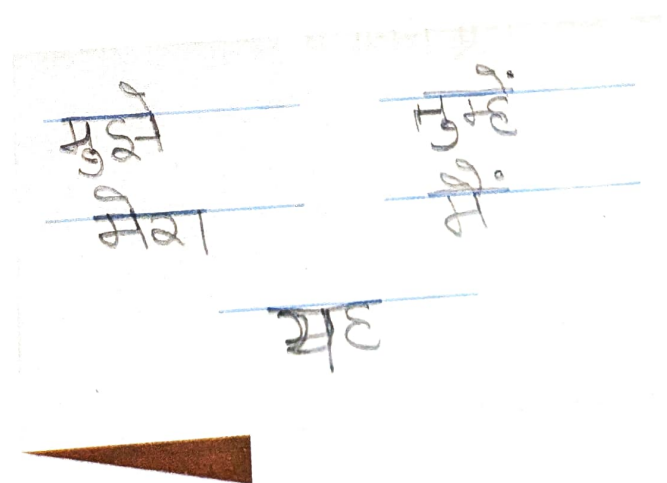 मुझे तुम्हें
मेरा मैं
यह